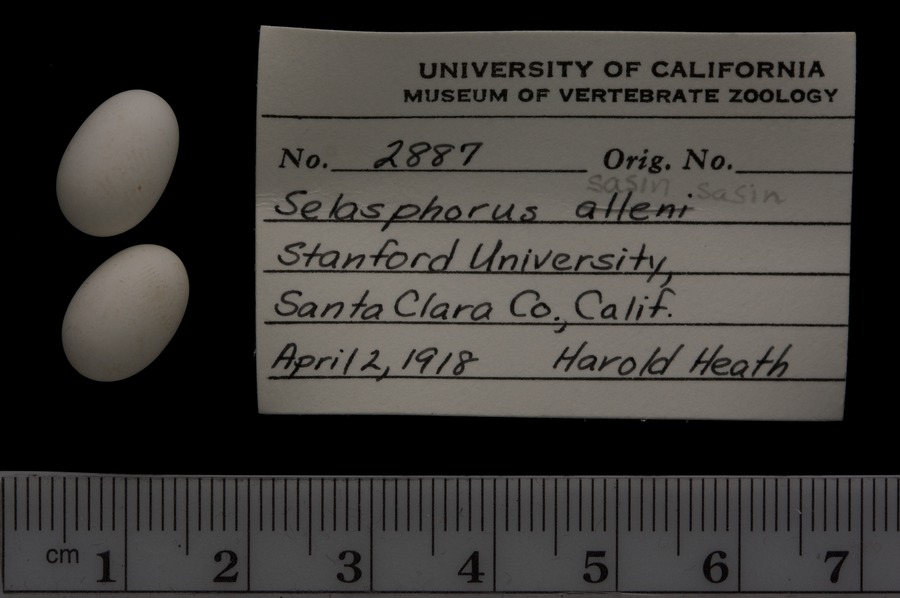 UNIVERSITY OF CALIFORNIA
MUSEUM OF VERTEBRATE ZOOLOGY
No. 2887 Orig. No.
sasin sasin
Selasphorus alleni
Stanford University,
Santa Clara Co., Calif.
April 2, 1918 Harold Heath
cm 1 2 3 4 5 6 7